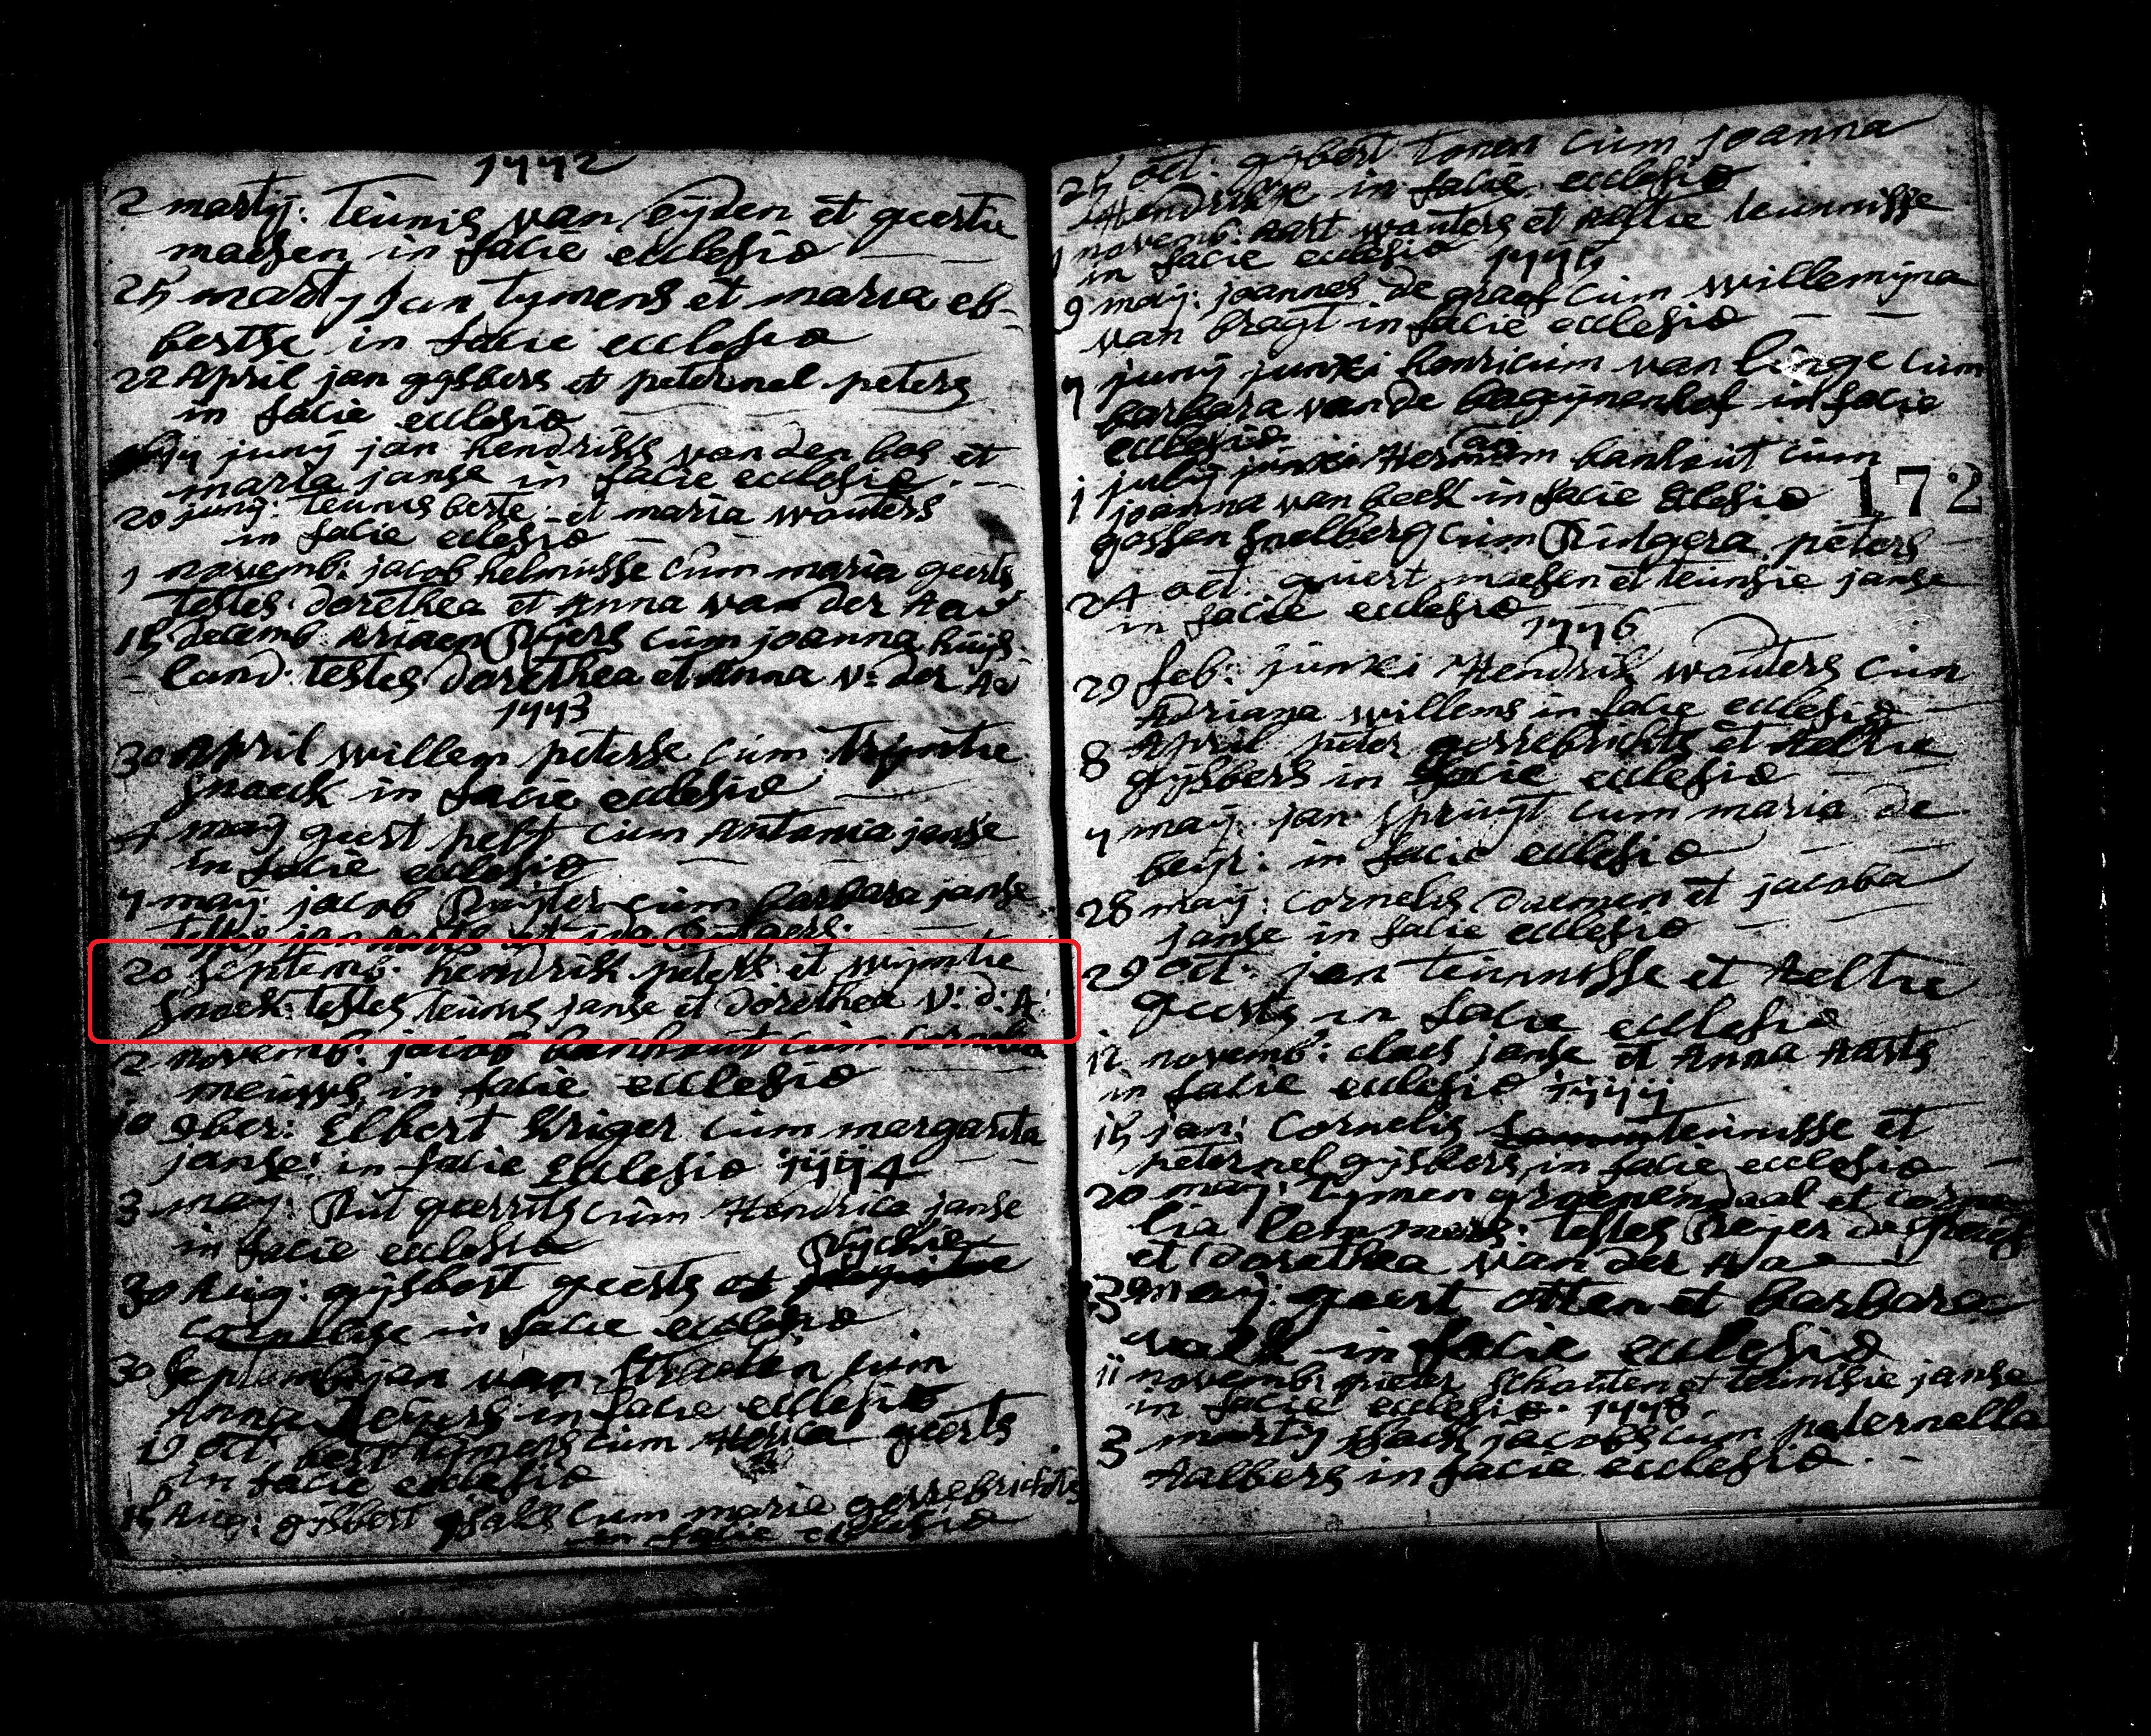 1772
2 martij: Teunis van eyden et geertie
maesen in facie ecclesiæ
25 martij Jan tymens et maria eb-
bertse in facie ecclesiæ
22 April jan gysbers et peternel peters
in facie ecclesiæ
junij jan hendriks van den bos et
maria janse in facie ecclesiæ.
20 junij: teunis berte et maria wouters
in facie eclesiæ
1 novemb: jacob helmisse cum maria geerts
testes dorethea et Anna van der Aa
15 decemb Ariaen Rijers cum joanna huijs
land. testes dorethea et Anna v: der Aa
1773
30 April willem peterse cum Tryntie
snoeck in facie ecclesiæ
4 maij geert pelt cum Antonia janse
in facie ecclesiæ
7 maij: jacob Ruijter cum barbara janse
testes jan Aarts et
20 septemb. hendrik peters et wijntie
snoek: testes teunis janse et dorethea v: d: A:
2 novemb: jacob banhout cum Cornelia
meuws, in facie ecclesiæ
10 9ber: Elbert Kriger cum margarita
janse: in facie ecclesiæ 1774
3 maij: Rut geerrits cum Hendrica janse
in facie ecclesiæ Rijckie
30 Aug: gijsbert geerts et
cornelisse in facie ecclesiæ
30 Septemb jan van Straelen cum
Anna Reijers in facie ecclesiæ
oct bert tijmens cum geerts
in facie ecclesiæ
15 Aug: gijsbert cum marie gerrebrichts
in facie ecclesiæ
25 oct: gijsbert Tonen cum Joanna
Hendrikx in facie ecclesiæ
1 novemb: Aart wauters et Aeltie teunnisse
in facie ecclesiæ 1775
9 maij: joannes de graaf cum willemijna
van bragt in facie ecclesiæ
7 junij junxi henricum van linge cum
barbara van de bagijnenhof in facie
ecclesiæ
1 julij junxi Herman banhout cum
joanna van beek in facie Eclesiæ 172
gossen snelberg cum Rutgera peters
24 oct: guert maesen et teunsie janse
in facie ecclesiæ 1776
29 feb: junxi Hendrik wauters cum
Adriana willems in facie ecclesiæ
8 April peter gerrebrichts et Aeltie
gijsbers in facie ecclesiæ
7 maij jan spruijt cum maria de
beijr: in facie ecclesiæ
28 maij: cornelis daemen et jacoba
janse in facie ecclesiæ
29 oct: jan teunnisse et Aeltie
geerts in facie ecclesiæ
12 novemb: claes janse et Anna Aarts
in facie ecclesiæ 1777
15 jan: Cornelis teunnisse et
peternel gijsbers in facie ecclesiæ
20 maij: tymen groenendaal et corne
lia lemmers: testes Reijer de
et dorothea van der Aa
30 maij: geert otten et barbara
valk in facie ecclesiæ
11 novemb: pieter schouten et teunisie janse
in facie ecclesiæ. 1778
3 martij jsaak jacobs cum peternella
Aalbers in facie ecclesiæ.